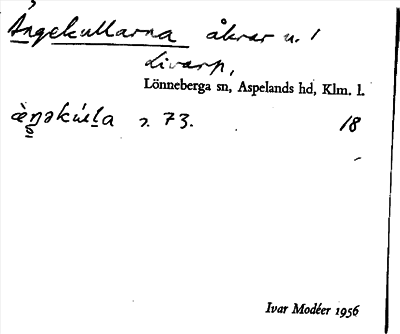 Ängekullarna åkrar u. 1
Livarp,
Lönneberga sn, Aspelands hd, Klm. l.
s. 73. 18
Ivar Modéer 1956